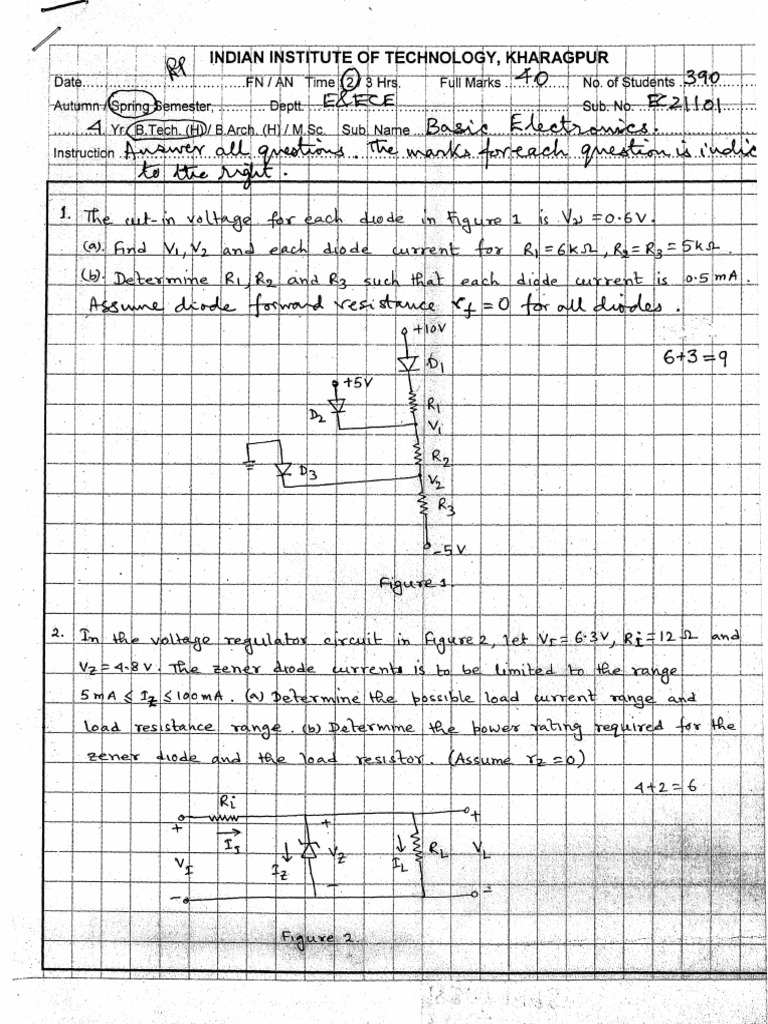 INDIAN INSTITUTE OF TECHNOLOGY, KHARAGPUR
Date FN / AN Time 2 / 3 Hrs. Full Marks 40 No. of Students 390
Autumn / Spring Semester, Deptt. E&ECE Sub. No. EC21101
Yr. B.Tech. (H) / B.Arch. (H) / M.Sc. Sub. Name Basic Electronics.
Instruction Answer all questions. The marks for each question is indic
to the right.
1. The cut-in voltage for each diode in Figure 1 is Vγ = 0.6V.
(a). Find V1, V2 and each diode current for R1 = 6kΩ, R2 = R3 = 5kΩ.
(b). Determine R1, R2 and R3 such that each diode current is 0.5 mA.
Assume diode forward resistance rf = 0 for all diodes.
+10V
6+3=9
D1
+5V
R1
D2
V1
R2
D3
V2
R3
-5V
Figure 1.
2. In the voltage regulator circuit in figure 2, let VI = 6.3V, Ri = 12Ω and
VZ = 4.8V. The zener diode currents is to be limited to the range
5mA ≤ IZ ≤ 100mA. (a) Determine the possible load current range and
load resistance range. (b) Determine the power rating required for the
zener diode and the load resistor. (Assume rZ = 0)
4+2=6
Ri
+ + +
II
VI IZ VZ IL RL VL
- - -
Figure 2.